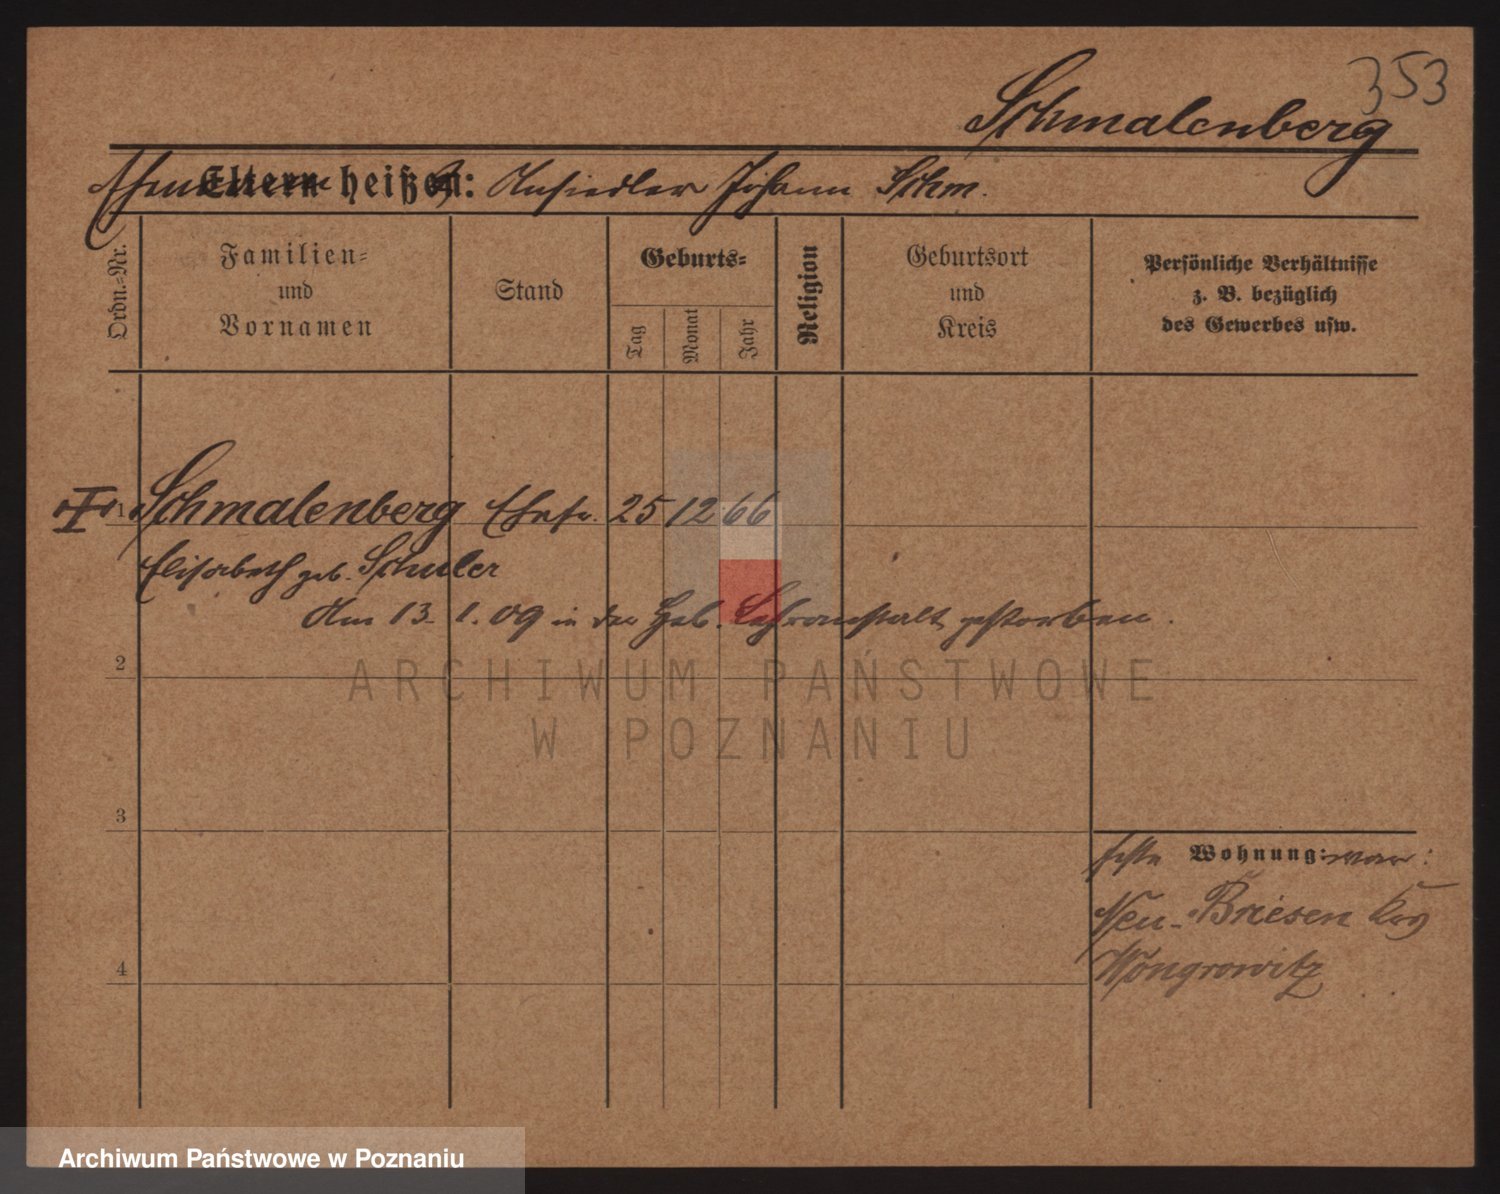 353
Schmalenberg
Ehemann Eltern heißen: Ansiedler Johann Schm.
Ordn.-Nr.
Familien-
und
Vornamen
Stand
Geburts-
Tag
Monat
Jahr
Religion
Geburtsort
und
Kreis
Persönliche Verhältnisse
z. B. bezüglich
des Gewerbes usw.
1 Schmalenberg Ehefr. 25 12 66
Elisabeth geb. Schuler
Am 13. 1. 09 in der Heb. Lehranstalt gestorben.
2
ARCHIWUM PAŃSTWOWE
W POZNANIU
3
Wohnung: war:
Neu-Briesen
Wongrowitz
4
Archiwum Państwowe w Poznaniu